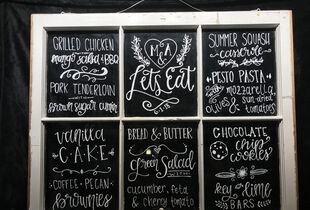 GRILLED CHICKEN
mango salsa & BBQ
PORK TENDERLOIN
brown sugar cumin
M & A
Let's Eat
SUMMER SQUASH
casserole
PESTO PASTA
w/ mozzarella,
olives & sun dried
tomatoes
vanilla
CAKE
COFFEE + PECAN
brownies
BREAD & BUTTER
green Salad
WITH
cucumber, feta
& cherry tomato
CHOCOLATE
chip
cookies
key lime
BARS